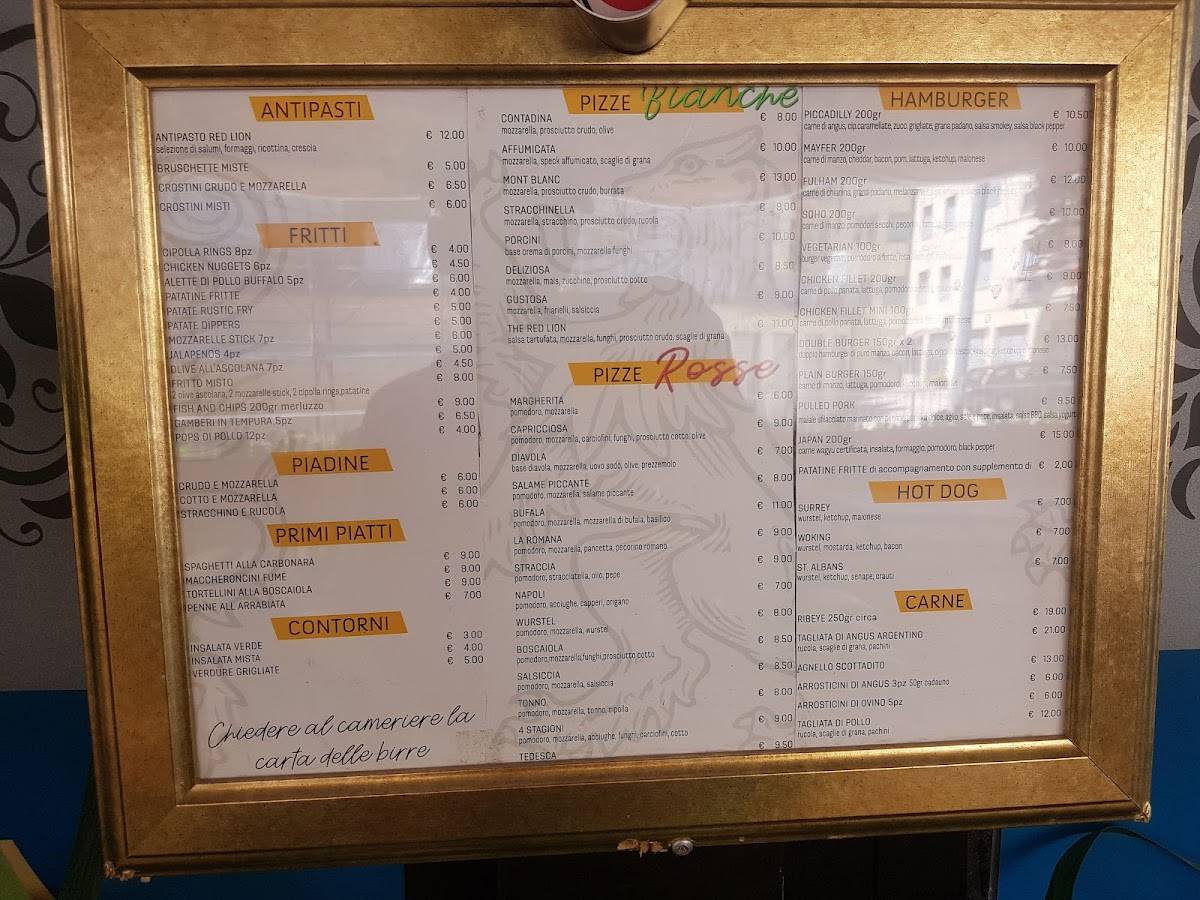 ANTIPASTI
ANTIPASTO RED LION € 12.00
selezione di salumi, formaggi, ricottina, crescia
BRUSCHETTE MISTE € 5.00
CROSTINI CRUDO E MOZZARELLA € 6.50
CROSTINI MISTI € 6.00
FRITTI
CIPOLLA RINGS 8pz € 4.00
CHICKEN NUGGETS 6pz € 4.50
ALETTE DI POLLO BUFFALO 5pz € 6.00
PATATINE FRITTE € 4.00
PATATE RUSTIC FRY € 5.00
PATATE DIPPERS € 5.00
MOZZARELLE STICK 7pz € 6.00
JALAPENOS 4pz € 5.00
OLIVE ALL'ASCOLANA 7pz € 4.50
FRITTO MISTO € 8.00
2 olive ascolana, 2 mozzarelle stick, 2 cipolla rings,patatine
FISH AND CHIPS 200gr merluzzo € 9.00
GAMBERI IN TEMPURA 5pz € 6.50
POPS DI POLLO 12pz € 4.00
PIADINE
CRUDO E MOZZARELLA € 6.00
COTTO E MOZZARELLA € 6.00
STRACCHINO E RUCOLA € 6.00
PRIMI PIATTI
SPAGHETTI ALLA CARBONARA € 9.00
MACCHERONCINI FUMÉ € 9.00
TORTELLINI ALLA BOSCAIOLA € 9.00
PENNE ALL ARRABIATA € 7.00
CONTORNI
INSALATA VERDE € 3.00
INSALATA MISTA € 4.00
VERDURE GRIGLIATE € 5.00
Chiedere al cameriere la
carta delle birre
PIZZE Bianche
CONTADINA € 8.00
mozzarella, prosciutto crudo, olive
AFFUMICATA € 10.00
mozzarella, speck affumicato, scaglie di grana
MONT BLANC € 13.00
mozzarella, prosciutto crudo, burrata
STRACCHINELLA € 9.00
mozzarella, stracchino, prosciutto crudo, rucola
PORCINI € 10.00
base crema di porcini, mozzarella funghi
DELIZIOSA € 8.50
mozzarella, mais, zucchine, prosciutto cotto
GUSTOSA € 9.00
mozzarella, friarielli, salsiccia
THE RED LION € 11.00
salsa tartufata, mozzarella, funghi, prosciutto crudo, scaglie di grana
PIZZE Rosse
MARGHERITA € 6.00
pomodoro, mozzarella
CAPRICCIOSA € 9.00
pomodoro, mozzarella, carciofini, funghi, prosciutto cotto, olive
DIAVOLA € 7.00
base diavola, mozzarella, uovo sodo, olive, prezzemolo
SALAME PICCANTE € 8.00
pomodoro, mozzarella, salame piccante
BUFALA € 11.00
pomodoro, mozzarella, mozzarella di bufala, basilico
LA ROMANA € 9.00
pomodoro, mozzarella, pancetta, pecorino romano
STRACCIA € 9.00
pomodoro, stracciatella, olio, pepe
NAPOLI € 7.00
pomodoro, acciughe, capperi, origano
WURSTEL € 8.00
pomodoro, mozzarella, wurstel
BOSCAIOLA € 8.50
pomodoro,mozzarella,funghi,prosciutto cotto
SALSICCIA € 8.50
pomodoro, mozzarella, salsiccia
TONNO € 8.00
pomodoro, mozzarella, tonno, cipolla
4 STAGIONI € 9.00
pomodoro, mozzarella, acciughe, funghi, carciofini, cotto
TEDESCA € 9.50
HAMBURGER
PICCADILLY 200gr € 10.50
carne di angus, cip.caramellate, zucc. grigliate, grana padano, salsa smokey, salsa black pepper
MAYFER 200gr € 10.00
carne di manzo, cheddar, bacon, pom, lattuga, ketchup, maionese
FULHAM 200gr € 12.00
carne di chianina, grana padano, melanzane
SOHO 200gr € 10.00
carne di manzo, pomodori secchi,
VEGETARIAN 100gr € 8.00
burger vegetale, pomodoro a fette,
CHICKEN FILLET 200gr € 9.00
carne di pollo panata, lattuga, pomodoro,
CHICKEN FILLET MINI 100gr € 7.50
carne di pollo panata, lattuga,
DOUBLE BURGER 150gr x 2 € 13.00
doppio hamburger di puro manzo, bacon, lattuga, ketchup,
PLAIN BURGER 150gr € 7.50
carne di manzo, lattuga, pomodoro,
PULLED PORK € 9.50
maiale sfilacciato marinato insalata, salsa BBQ, salsa yogurt
JAPAN 200gr € 15.00
carne wagyu certificata, insalata, formaggio, pomodoro, black pepper
PATATINE FRITTE di accompagnamento con supplemento di € 2,00
HOT DOG
SURREY € 7.00
wurstel, ketchup, maionese
WOKING € 7.00
wurstel, mostarda, ketchup, bacon
ST. ALBANS € 7.00
wurstel, ketchup, senape, crauti
CARNE
RIBEYE 250gr circa € 19.00
TAGLIATA DI ANGUS ARGENTINO € 21.00
rucola, scaglie di grana, pachini
AGNELLO SCOTTADITO € 13.00
ARROSTICINI DI ANGUS 3pz 50gr cadauno € 6.00
ARROSTICINI DI OVINO 5pz € 6.00
TAGLIATA DI POLLO € 12.00
rucola, scaglie di grana, pachini